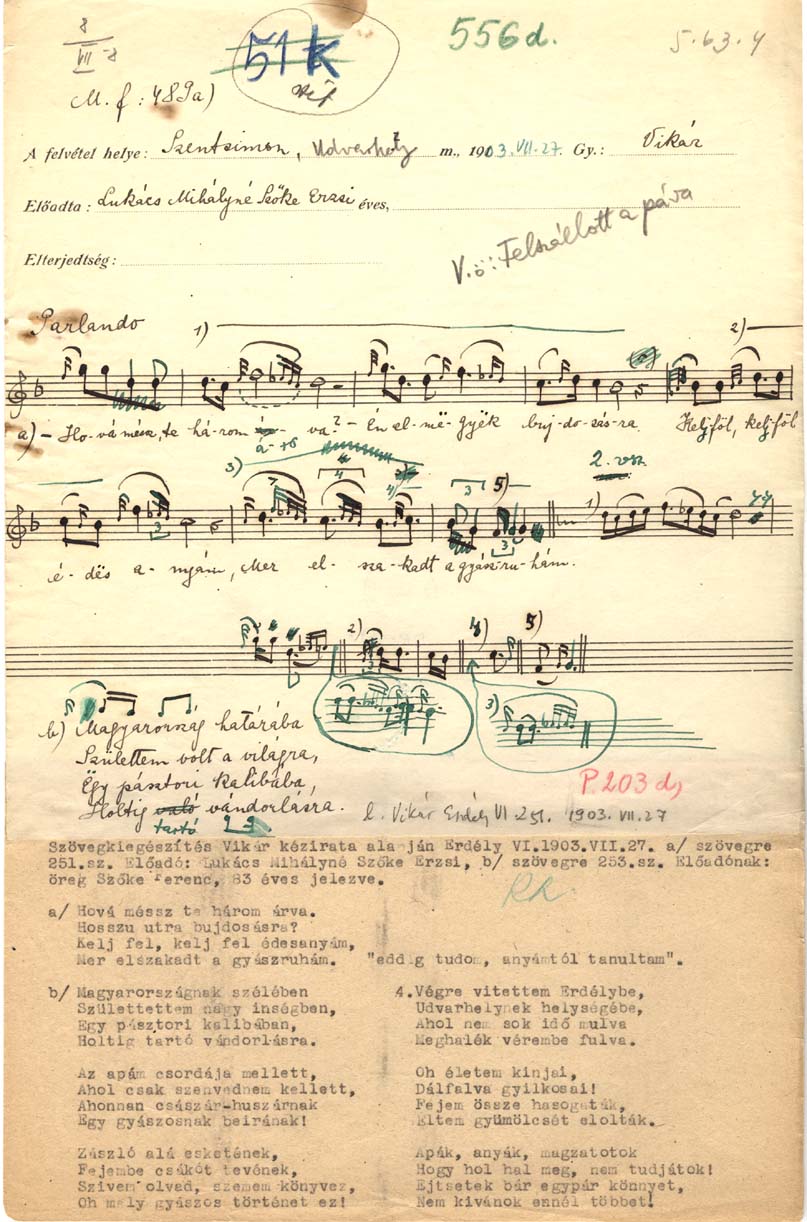 8
VII-8
51k
556d.
5.63.4
M.f: 489a)
A felvétel helye: Szentsimon, Udvarhely m., 1903.VII.27. Gy.: Vikár
Előadta: Lukács Mihályné Szőke Erzsi éves,
V.ö.: Felszállott a páva
Elterjedtség:
Parlando 1) 2)
a) - Ho-vá mész, te há-rom á- va? - Én el-më-gyëk buj-do-sás-ra. Kelj-föl, kelj-föl
3) 4 3 5) 2. vsz. 1)
é-dës a-nyám, Mer el-sza-kadt a gyász-ru-hám.
2) 4) 5)
3)
b) Magyarország határába
Születtem volt a világra,
Ëgy pásztori kalibába,
Holtig való vándorlásra.
tartó
P.203 d,
l. Vikár Erdély VI 251. 1903.VII.27
Szövegkiegészítés Vikár kézirata ala ján Erdély VI.1903.VII.27. a/ szövegre
251.sz. Előadó: Lukács Mihályné Szőke Erzsi, b/ szövegre 253.sz. Előadónak:
öreg Szőke Ferenc, 83 éves jelezve.
a/ Hová méssz te három árva.
Hosszu utra bujdosásra?
Kelj fel, kelj fel édesanyám,
Mer elszakadt a gyászruhám. "eddig tudom, anyámtól tanultam".
b/ Magyarországnak szélében
Születtettem nagy inségben,
Egy pásztori kalibában,
Holtig tartó vándorlásra.
Az apám csordája mellett,
Ahol csak szenvednem kellett,
Ahonnan császár-huszárnak
Egy gyászosnak beirának!
Zászló alá esketének,
Fejembe csákót tevének,
Szivem olvad, szemem könyvez,
Oh mely gyászos történet ez!
4.Végre vitettem Erdélybe,
Udvarhelynek helységébe,
Ahol nem sok idő mulva
Meghalék vérembe fulva.
Oh életem kinjai,
Dálfalva gyilkosai!
Fejem össze hasogaták,
Éltem gyümölcsét elolták.
Apák, anyák, magzatotok
Hogy hol hal meg, nem tudjátok!
Ejtsetek bár egypár könnyet,
Nem kivánok ennél többet!